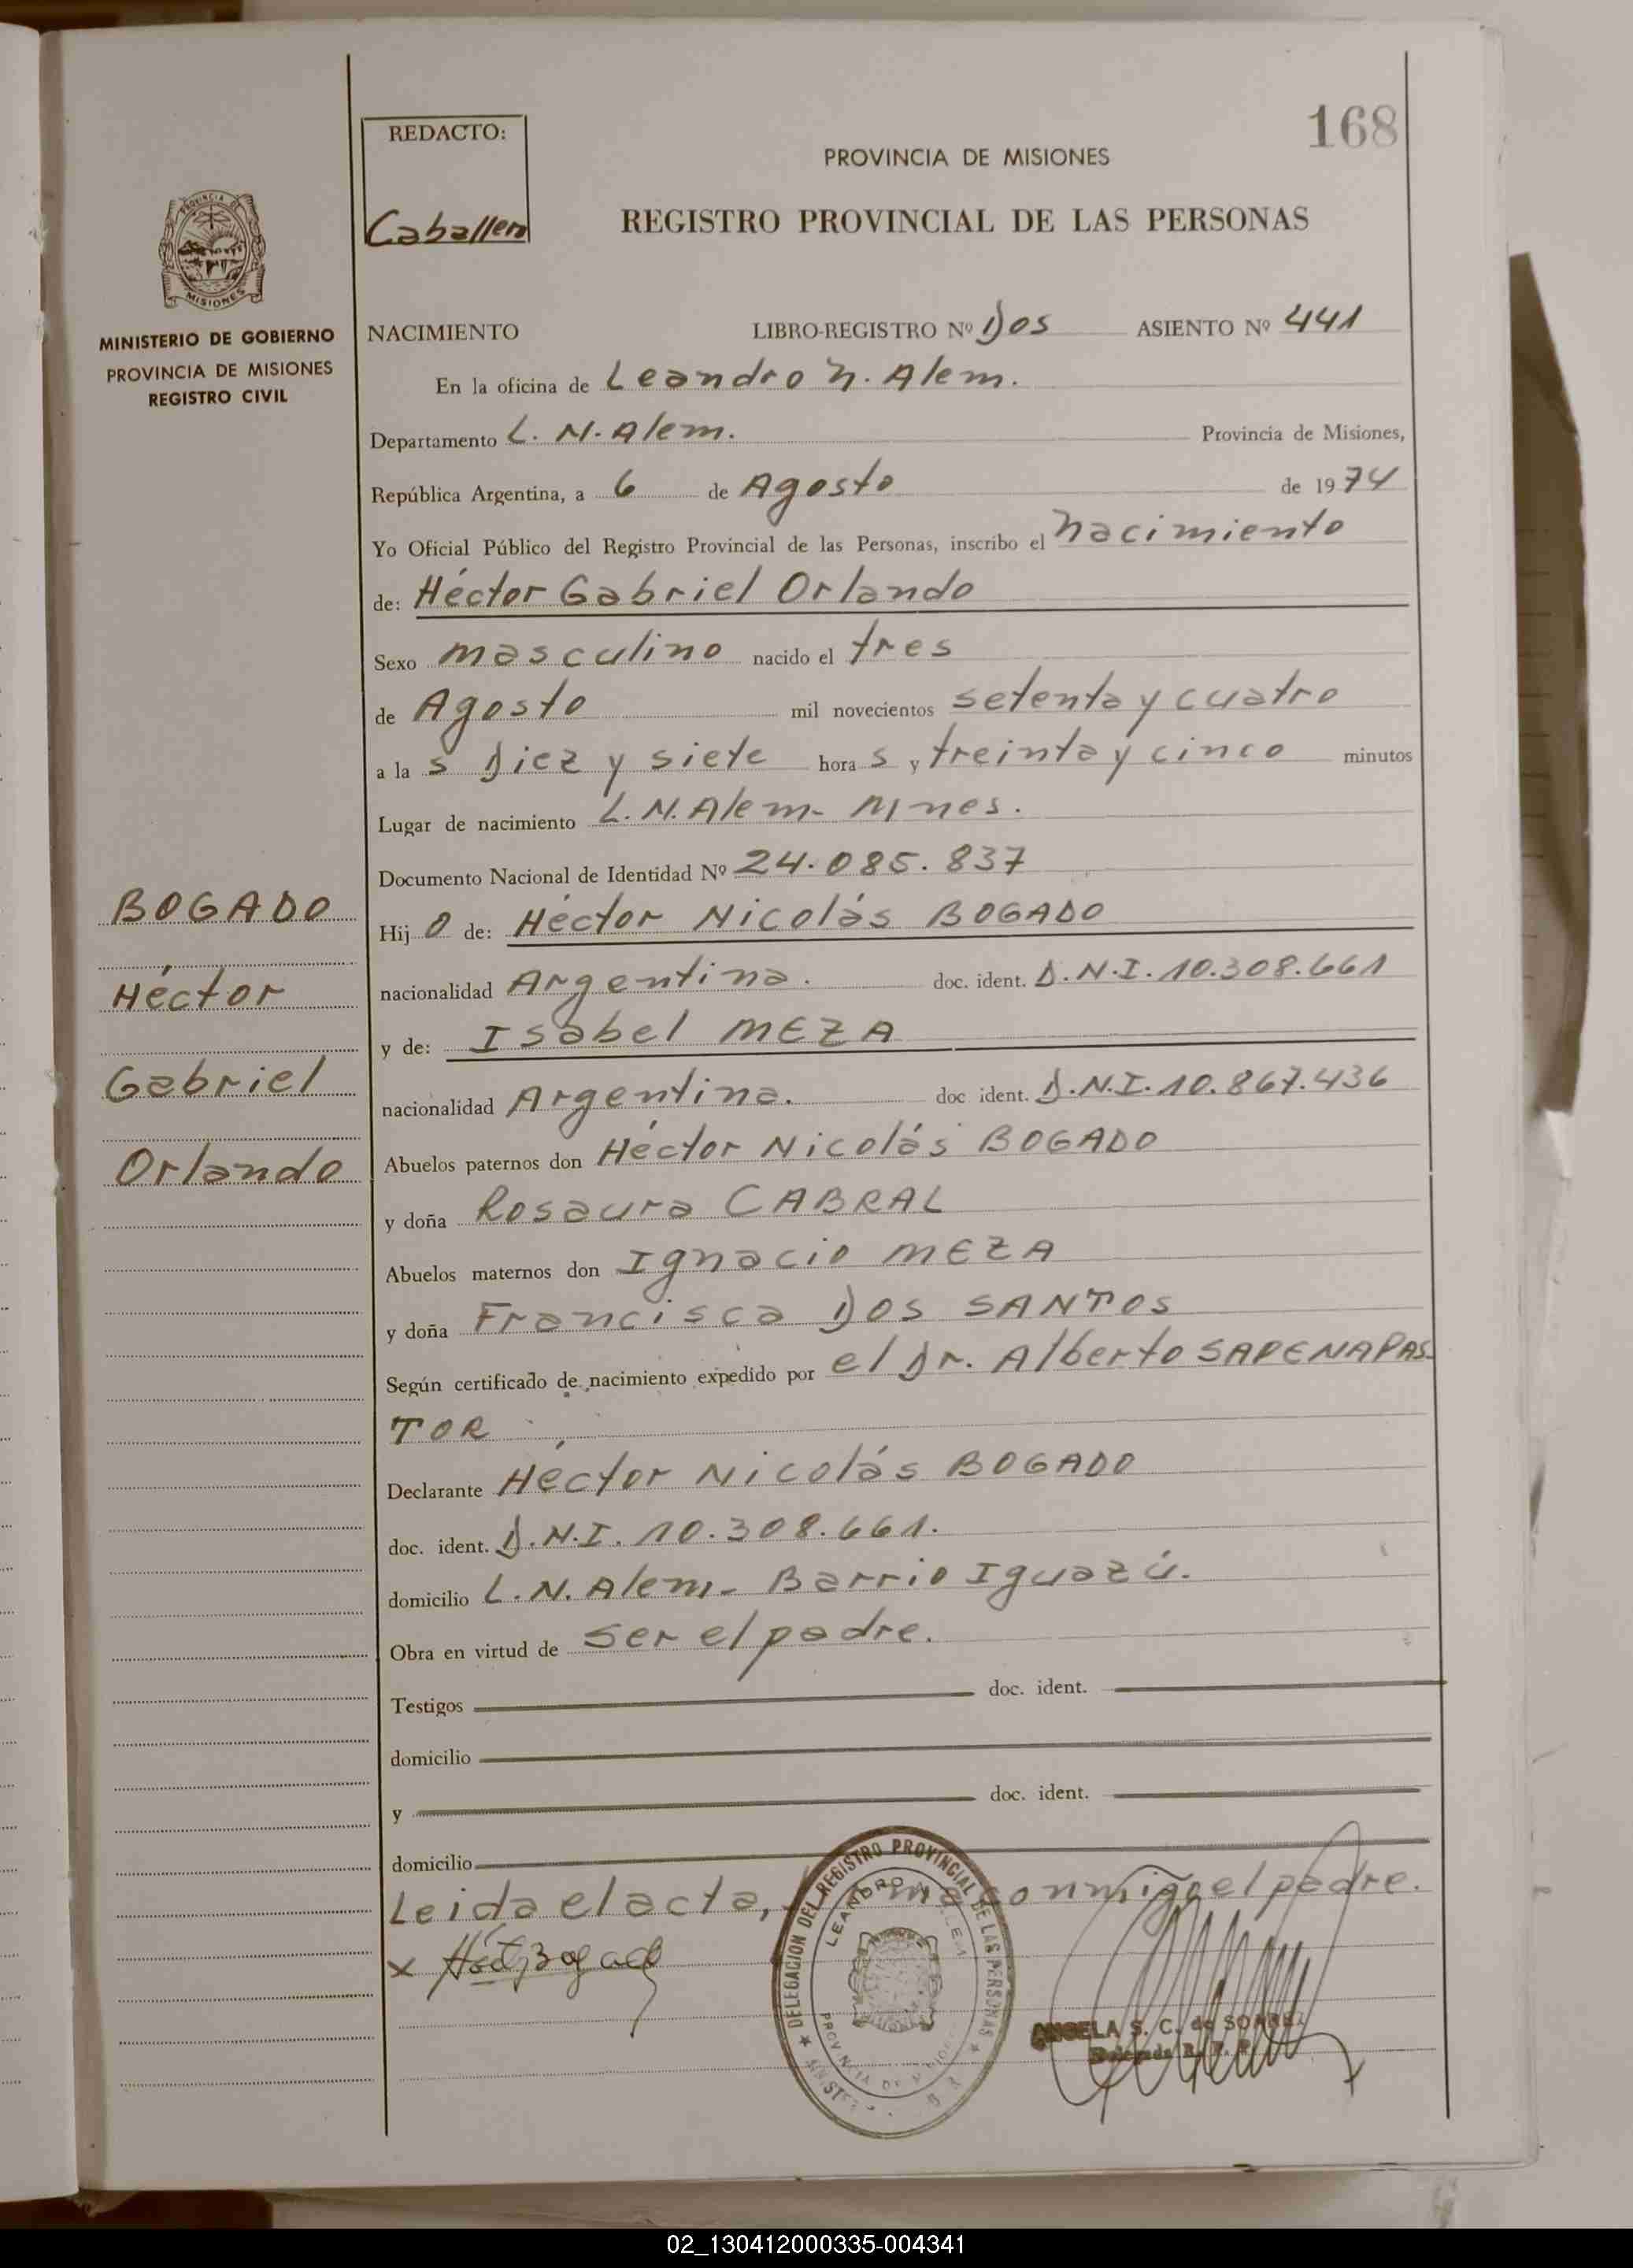 168
REDACTO:
Caballero
PROVINCIA DE MISIONES
REGISTRO PROVINCIAL DE LAS PERSONAS
PROVINCIA DE
MISIONES
MINISTERIO DE GOBIERNO
PROVINCIA DE MISIONES
REGISTRO CIVIL
NACIMIENTO LIBRO-REGISTRO Nº Dos ASIENTO Nº 441
En la oficina de Leandro N. Alem.
Departamento L. N. Alem. Provincia de Misiones,
República Argentina, a 6 de Agosto de 1974
Yo Oficial Público del Registro Provincial de las Personas, inscribo el nacimiento
de: Héctor Gabriel Orlando
Sexo masculino nacido el tres
de Agosto mil novecientos setenta y cuatro
a la s Diez y siete hora s y treinta y cinco minutos
Lugar de nacimiento L. N. Alem - Mnes.
Documento Nacional de Identidad Nº 24.085.837
BOGADO
Héctor
Gabriel
Orlando
Hij o de: Héctor Nicolás BOGADO
nacionalidad Argentina. doc. ident. D.N.I. 10.308.661
y de: Isabel MEZA
nacionalidad Argentina. doc ident. D.N.I. 10.867.436
Abuelos paternos don Héctor Nicolás BOGADO
y doña Rosaura CABRAL
Abuelos maternos don Ignacio MEZA
y doña Francisca DOS SANTOS
Según certificado de nacimiento expedido por el Dr. Alberto SAPENAPAS-
TOR
Declarante Héctor Nicolás BOGADO
doc. ident. D.N.I. 10.308.661.
domicilio L.N. Alem - Barrio Iguazú.
Obra en virtud de ser el padre.
Testigos doc. ident.
domicilio
y doc. ident.
domicilio
Leida el acta, firma conmigo el padre.
x Héct Bogado
DELEGACION DEL REGISTRO PROVINCIAL DE LAS PERSONAS
LEANDRO N. ALEM
PROVINCIA DE
ANGELA S. C. de
Delegada R. P. P.
02_130412000335-004341